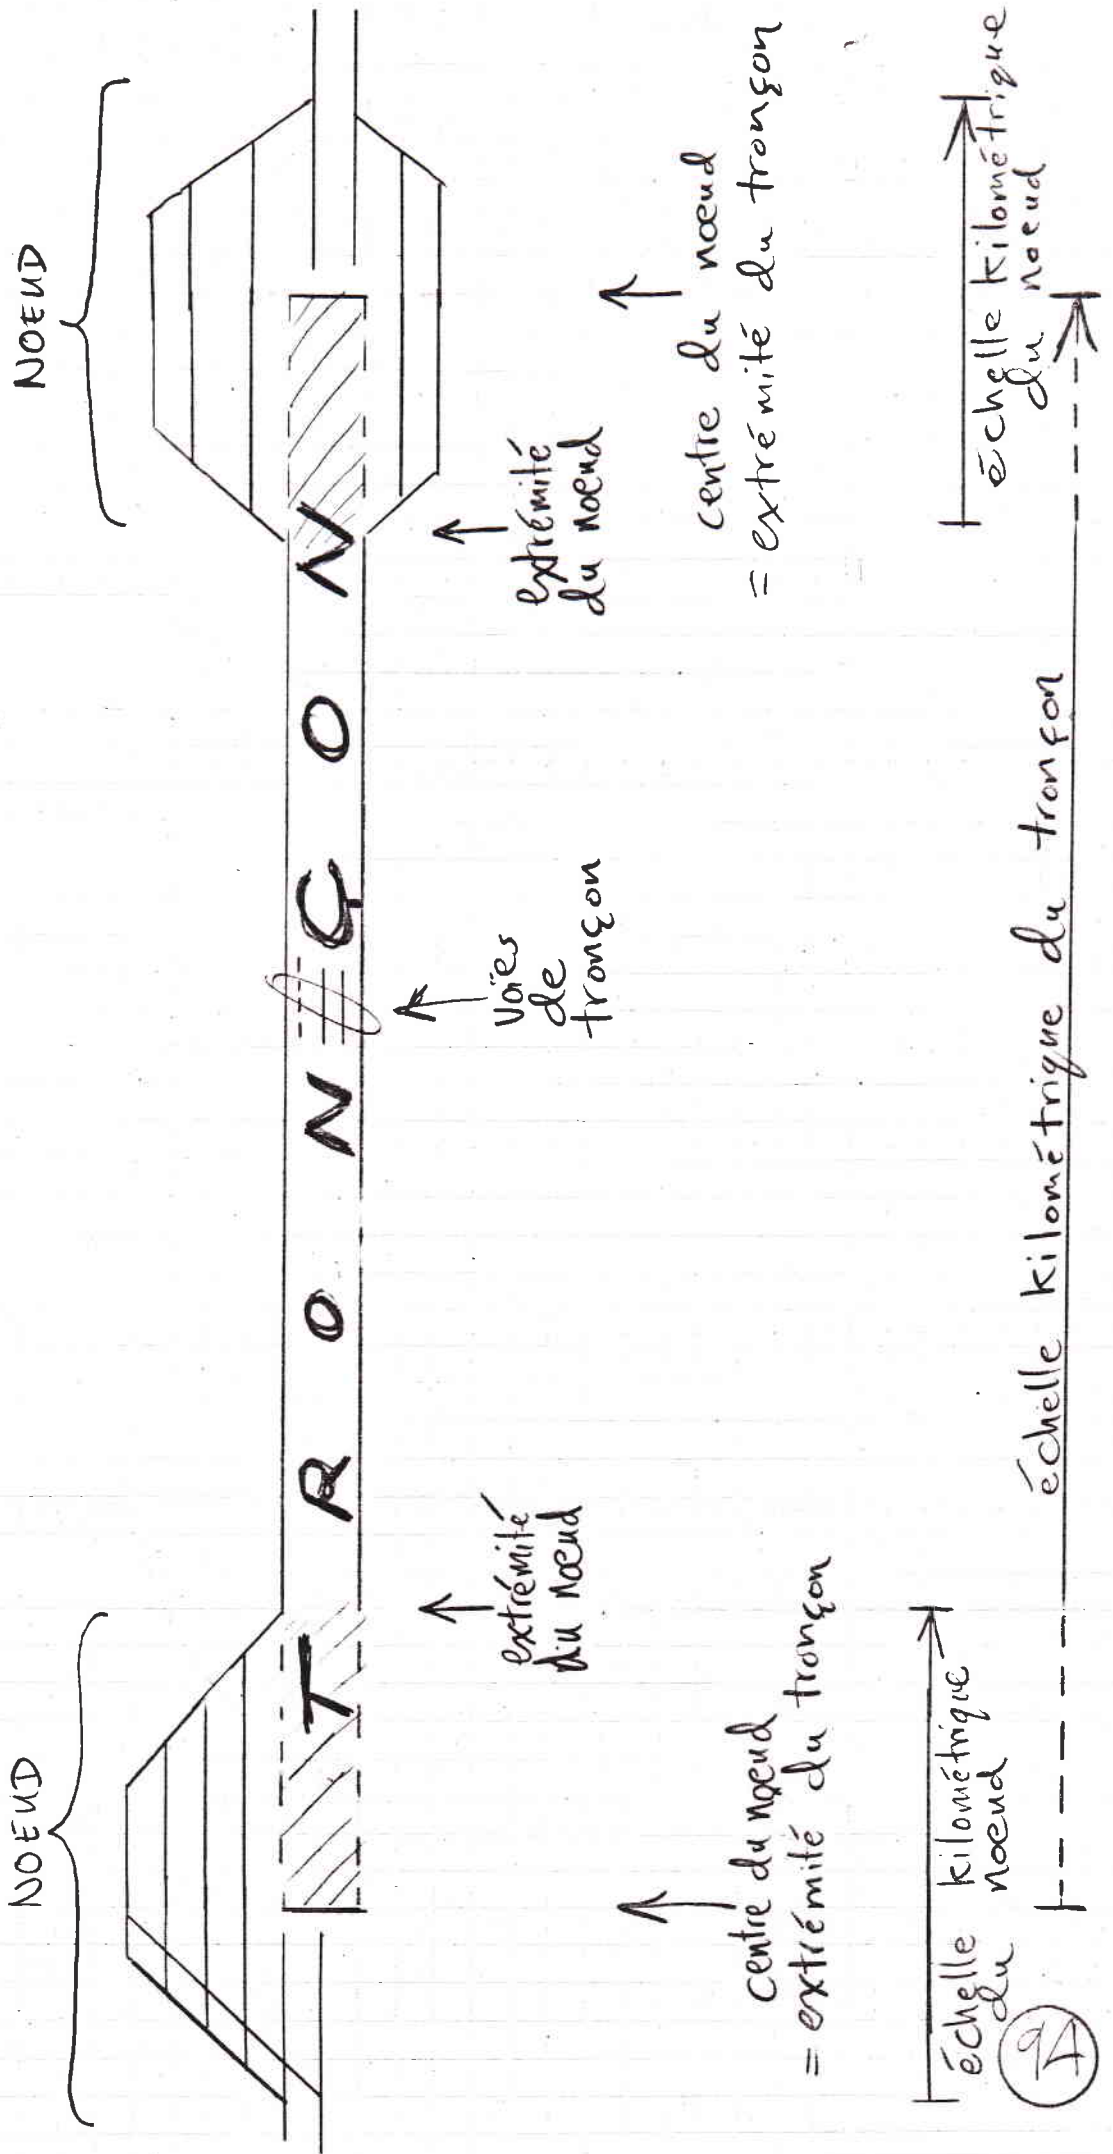 NOEUD
NOEUD
TRONNÇON
extrémité
du nœud
Voies
de
tronçon
extrémité
du noeud
centre du nœud
= extrémité du tronçon
centre du nœud
= extrémité du tronçon
échelle kilométrique
du nœud
échelle kilométrique du tronçon
échelle kilométrique
du noeud
9A